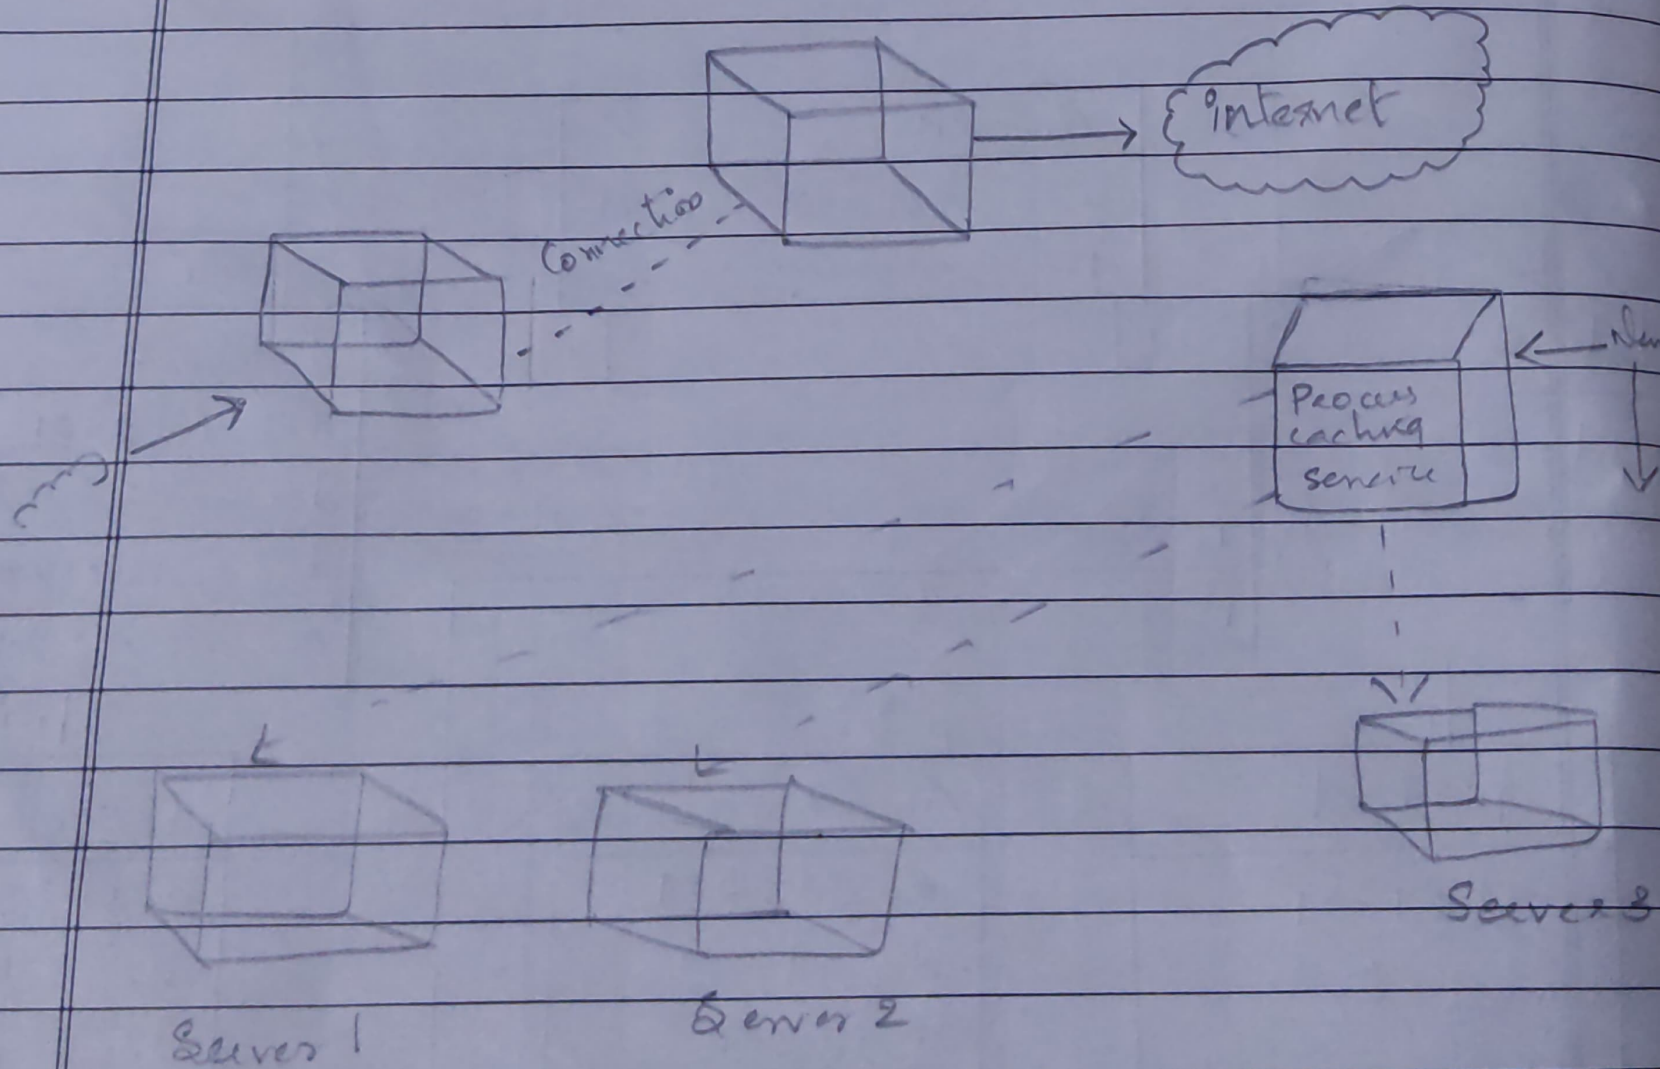 internet
Connection
Process
caching
service
Server 3
Server 2
Server 1